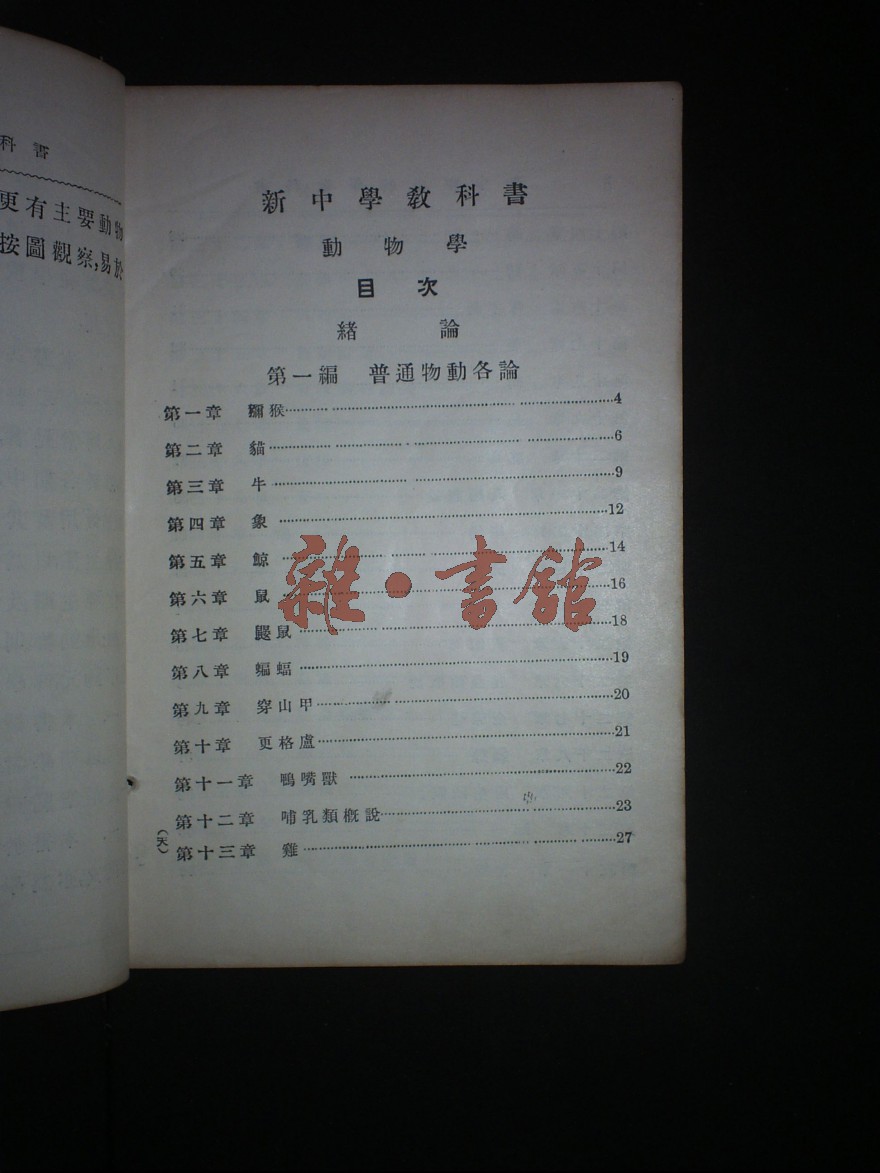 科書
更有主要動物
按圖觀察,易於
新中學教科書
動物學
目次
緒論
第一編 普通物動各論
第一章 獼猴……4
第二章 貓……6
第三章 牛……9
第四章 象……12
第五章 鯨……14
第六章 鼠……16
第七章 鼴鼠……18
第八章 蝙蝠……19
第九章 穿山甲……20
第十章 更格盧……21
第十一章 鴨嘴獸……22
第十二章 哺乳類概說……23
第十三章 雞……27
(天)
雜·書館